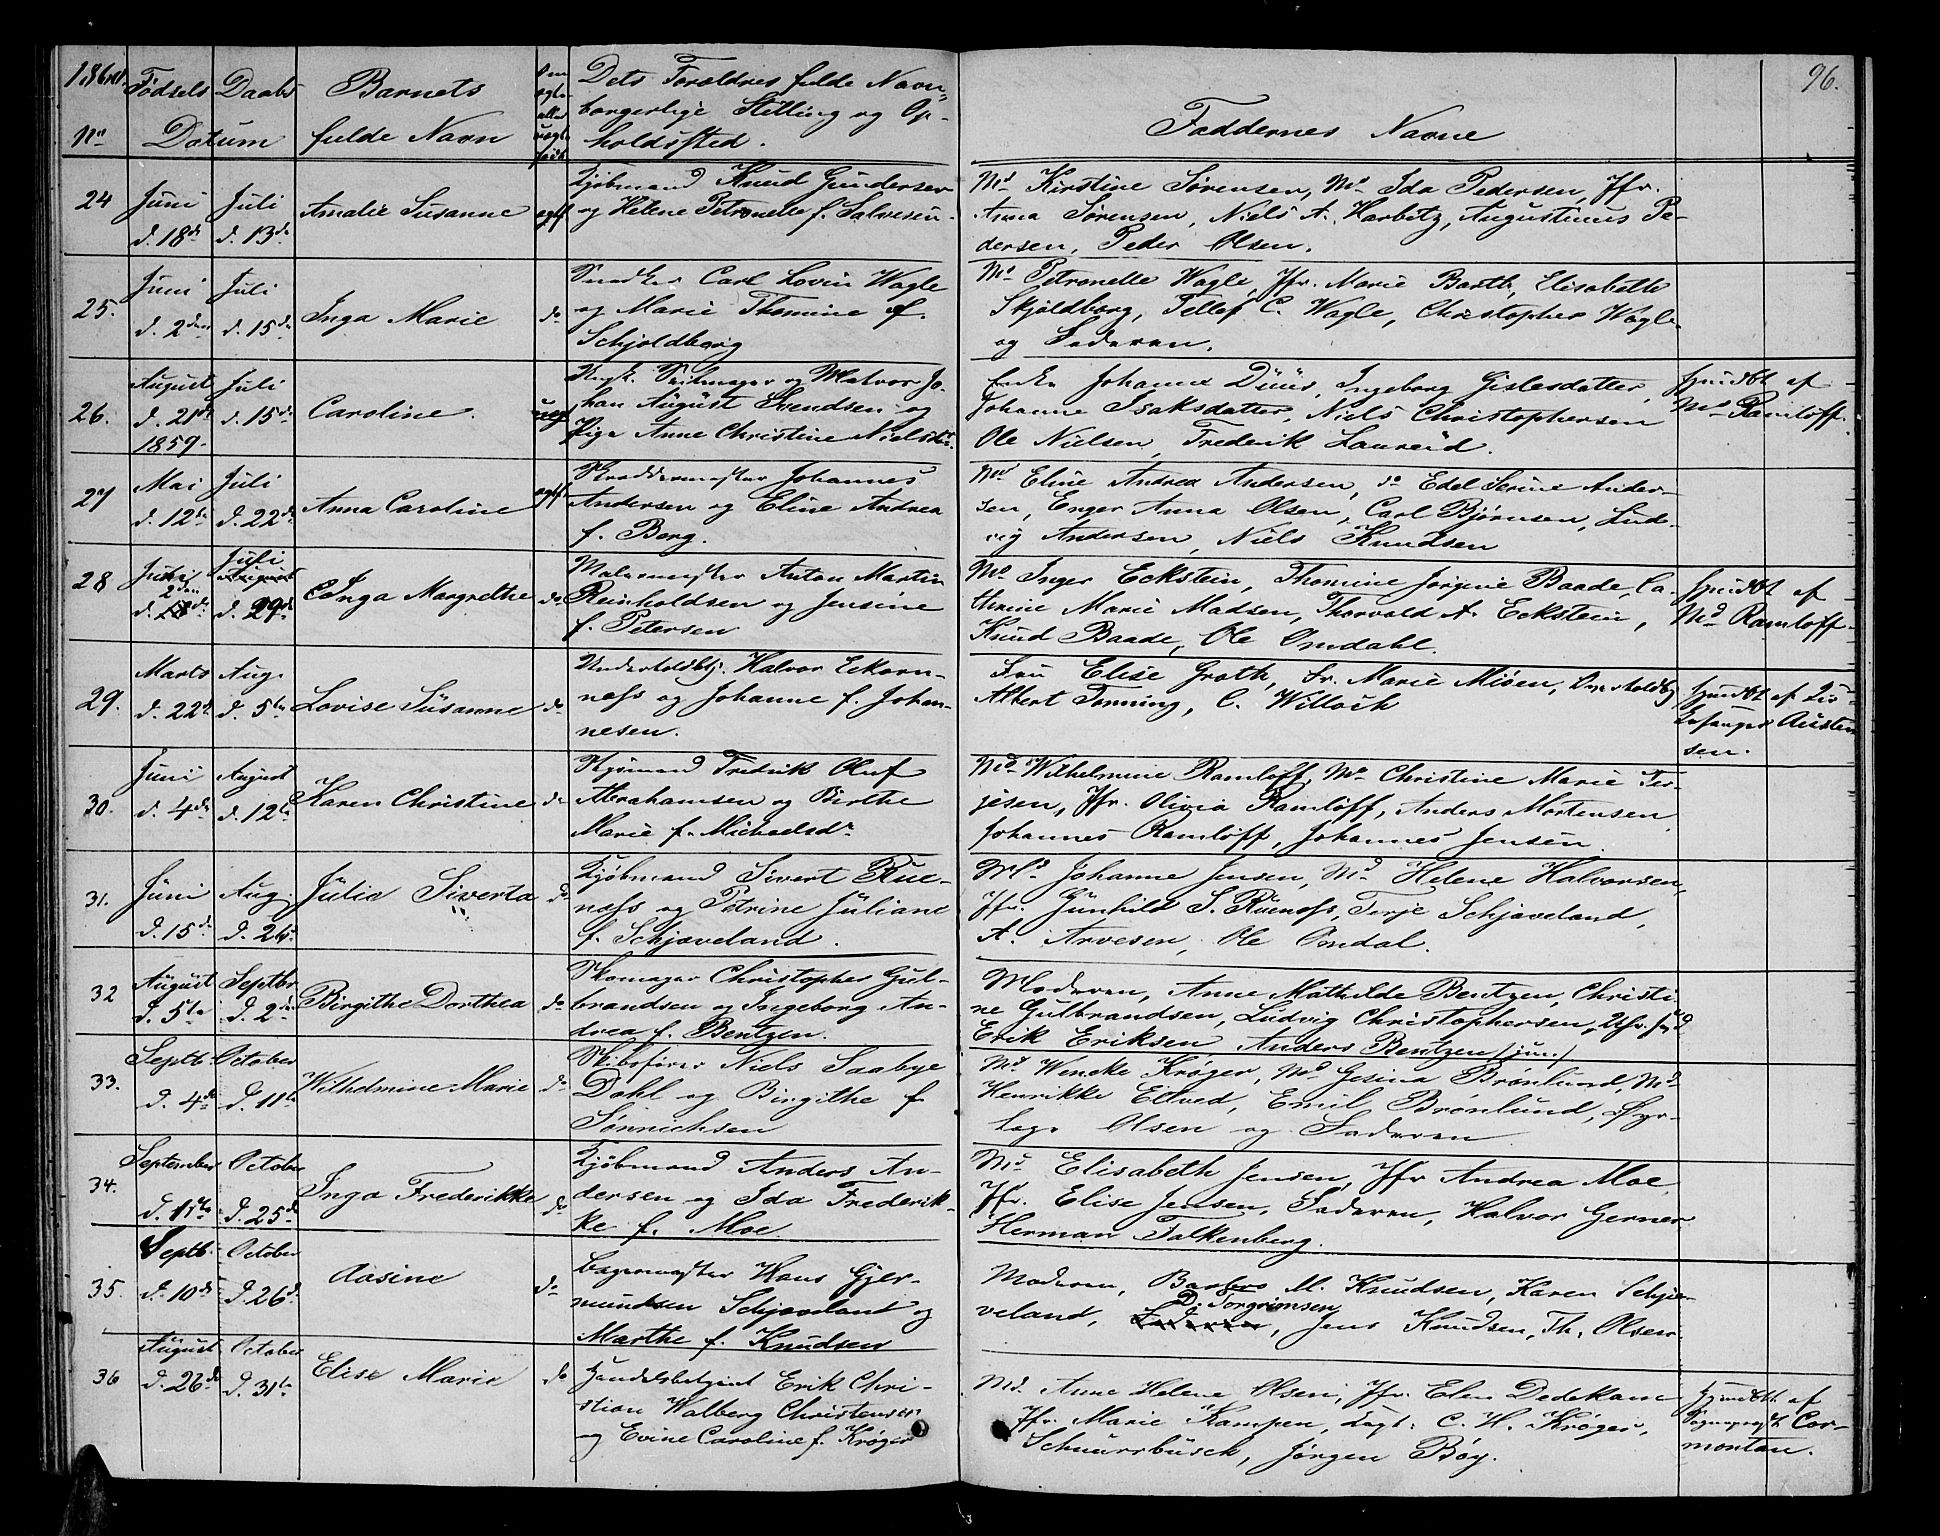 96.
Fødsels Daabs Barnets Dets Forældres fulde Navn,
borgerlige Stilling og Op-
No Datum fulde Navn holdssted.
Faddernes Navne
24 Juni d. 18de Juli d. 13de Amalie Susanne ægtf
Kjøbmand Knud Gundersen
og Helene Petronelle f. Salvesen
Md Kirstine Sørensen, Md Ida Pedersen, Jfr.
Anna Sørensen, Niels A. Harbitz, Augustinus Pe-
dersen, Peder Olsen.
25. Juni d. 2den Juli d. 15de Inga Marie do
Snedker Carl Lovin Wagle
og Marie Thomine f.
Schjoldborg
Md Petronelle Wagle, Jfr. Marie Barth, Elisabeth
Skjoldborg, Tellef C. Wagle, Christopher Wagle
og Faderen.
26. August d. 21de 1859. Juli d. 15de Caroline. uægt
Ungk. Seilmager og Matros Jo-
han August Svendsen og
Pige Anne Christine Nielsdtr.
Enke Johanne Düüs, Ingeborg Gislesdatter,
Johanne Isaksdatter, Niels Christophersen
Ole Nielsen, Frederik Laureid.
hjmdbt af
Md Ramløff.
27 Mai d. 12te Juli d. 22de Anna Caroline ægtf.
Skræddermester Johannes
Andersen og Eline Andrea
f. Berg.
Md Eline Andrea Andersen, do Edel Serine Ander-
sen, Enger Anna Olsen, Carl Bjørnsen, Lud-
vig Andersen, Niels Knudsen
28 Juni 2den Juli d. 29de Inga Margrethe do
Malermester Anton Martin
Reinholdsen og Jensine
f. Petersen
Md Inger Eckstein, Thomine Jørgine Baade, Ca-
thrine Marie Madsen, Thorvald A. Eckstein,
Knud Baade, Ole Omdahl.
hjmdbt af
Md Ramløff.
29. Marts d. 22de Aug. d. 5te Lovise Süsanne do
Underholdbtj. Halvor Eckorn-
næss og Johanne f. Johan-
nesen.
Fru Elise Groth, Fr. Marie Misen,
Albert Tønning, C. Willoch
hjmdbt af
30. Juni d. 4de August d. 12te Karen Christine do
Styrmand Fredrik Oluf
Abrahamsen og Birthe
Marie f. Michaelsdr
Md Wilhelmine Ramløff, Md Christine Marie Ter-
jesen, Jfr. Olivia Ramløff, Anders Mortensen,
Johannes Ramløff, Johannes Jensen.
31. Juni d. 15de Aug. d. 26. Julia Siverta do
Kjøbmand Sivert Rue-
næss og Petrine Juliane
f. Schjæveland.
Md Johanne Jensen, Md Helene Halvorsen,
Jfr. Gunhild S. Ruenæss, Terje Schjæveland,
A. Arvesen, Ole Omdal.
32 August d. 5te Septbr d. 2de Birgithe Dorthea do
Skomager Christopher Gul-
brandsen og Ingeborg An-
drea f. Bentzen.
Moderen, Anne Mathilde Bentzen, Christi-
ne Gulbrandsen, Ludvig Christophersen,
Erik Eriksen Anders Bentzen /jun/
33. Septb. d. 4de October d. 11te Wilhelmine Marie do
Skibsfører Niels Saabye
Dahl og Birgithe f.
Sønnichsen
Md Wencke Krøger, Md Gesina Brønlund, Md
Henrikke Eitved, Emil Brønlund,
Olsen og Faderen
34. September d. 11te October d. 25de Inga Frederikke do
Kjøbmand Anders An-
dersen og Ida Frederik-
ke f. Moe.
Md Elisabeth Jensen, Jfr Andrea Moe,
Jfr. Elise Jensen, Faderen, Halvor Gerner
Herman Falkenberg.
35. Septb. d. 10de October d. 26de Aasine do
Bagermester Hans Gjer-
mundsen Schjæveland og
Marthe f. Knudsen
Moderen, Barbro M. Knudsen, Karen Schjæ-
D. Torgrimsen
veland, Faderen, Jens Knudsen, Th. Olsen.
36 August d. 26de October d. 31te Elise Marie do
Handelsbetjent Erik Chri-
stian Walberg Christensen
og Evine Caroline f. Krøger
Md. Anne Helene Olsen, Jfr. Elen Dedekam
Jfr. Marie Kampen, C. H. Krøger,
Schnurrbusch, Jørgen Bøy.
hjmdbt af
Cor-
montan.